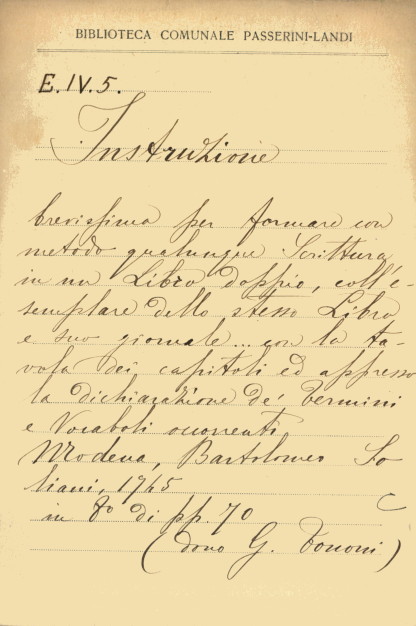 BIBLIOTECA COMUNALE PASSERINI-LANDI
E. IV. 5.
Instruzione
brevissima per formare con
metodo qualunque Scrittura
in un Libro doppio, coll'e-
semplare dello stesso Libro
e suo giornale... con la ta-
vola dei capitoli ed appresso
la dichiarazione de' termini
e Vocaboli occorrenti
Modena, Bartolomeo So
liani, 1745
in 8º di pp. 70
(dono G. Tononi)